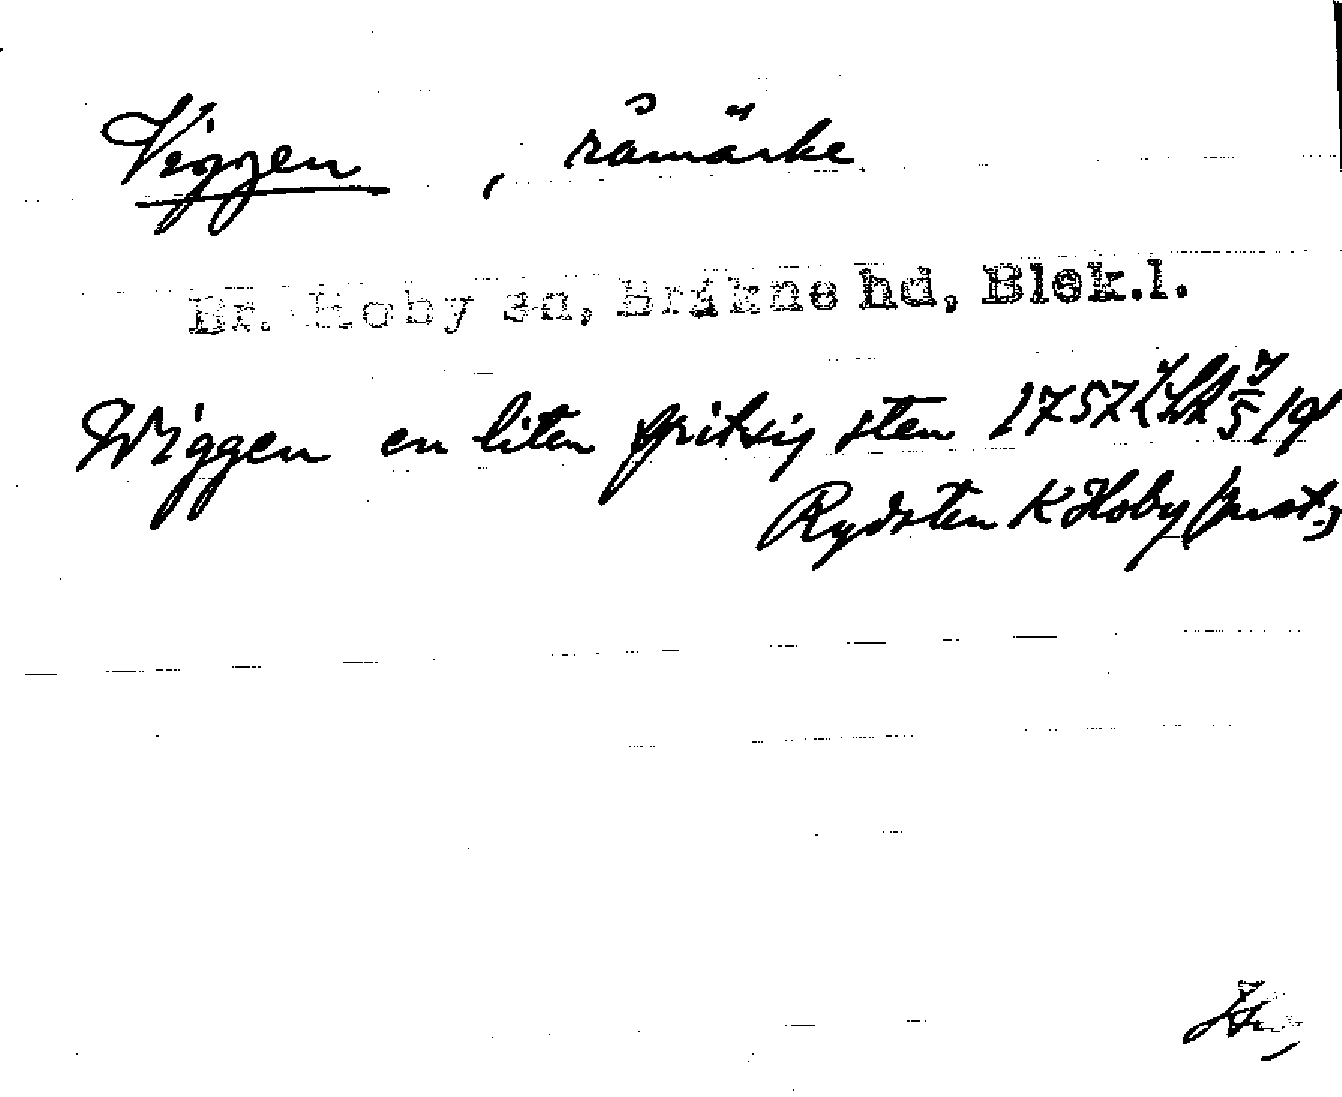 Viggen, råmärke
Br. Hoby sn, Bräkne hd, Blek.l.
Wiggen en liten spitsig sten 1757
Rydsten K Hoby